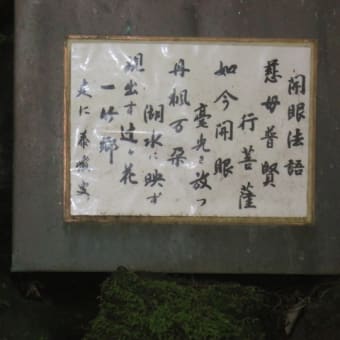 開眼法語
慈母普賢
行菩薩
如今開眼
毫光を放つ
丹楓万朶
湖水に映ず
現出す這ヶ花
一竹郷